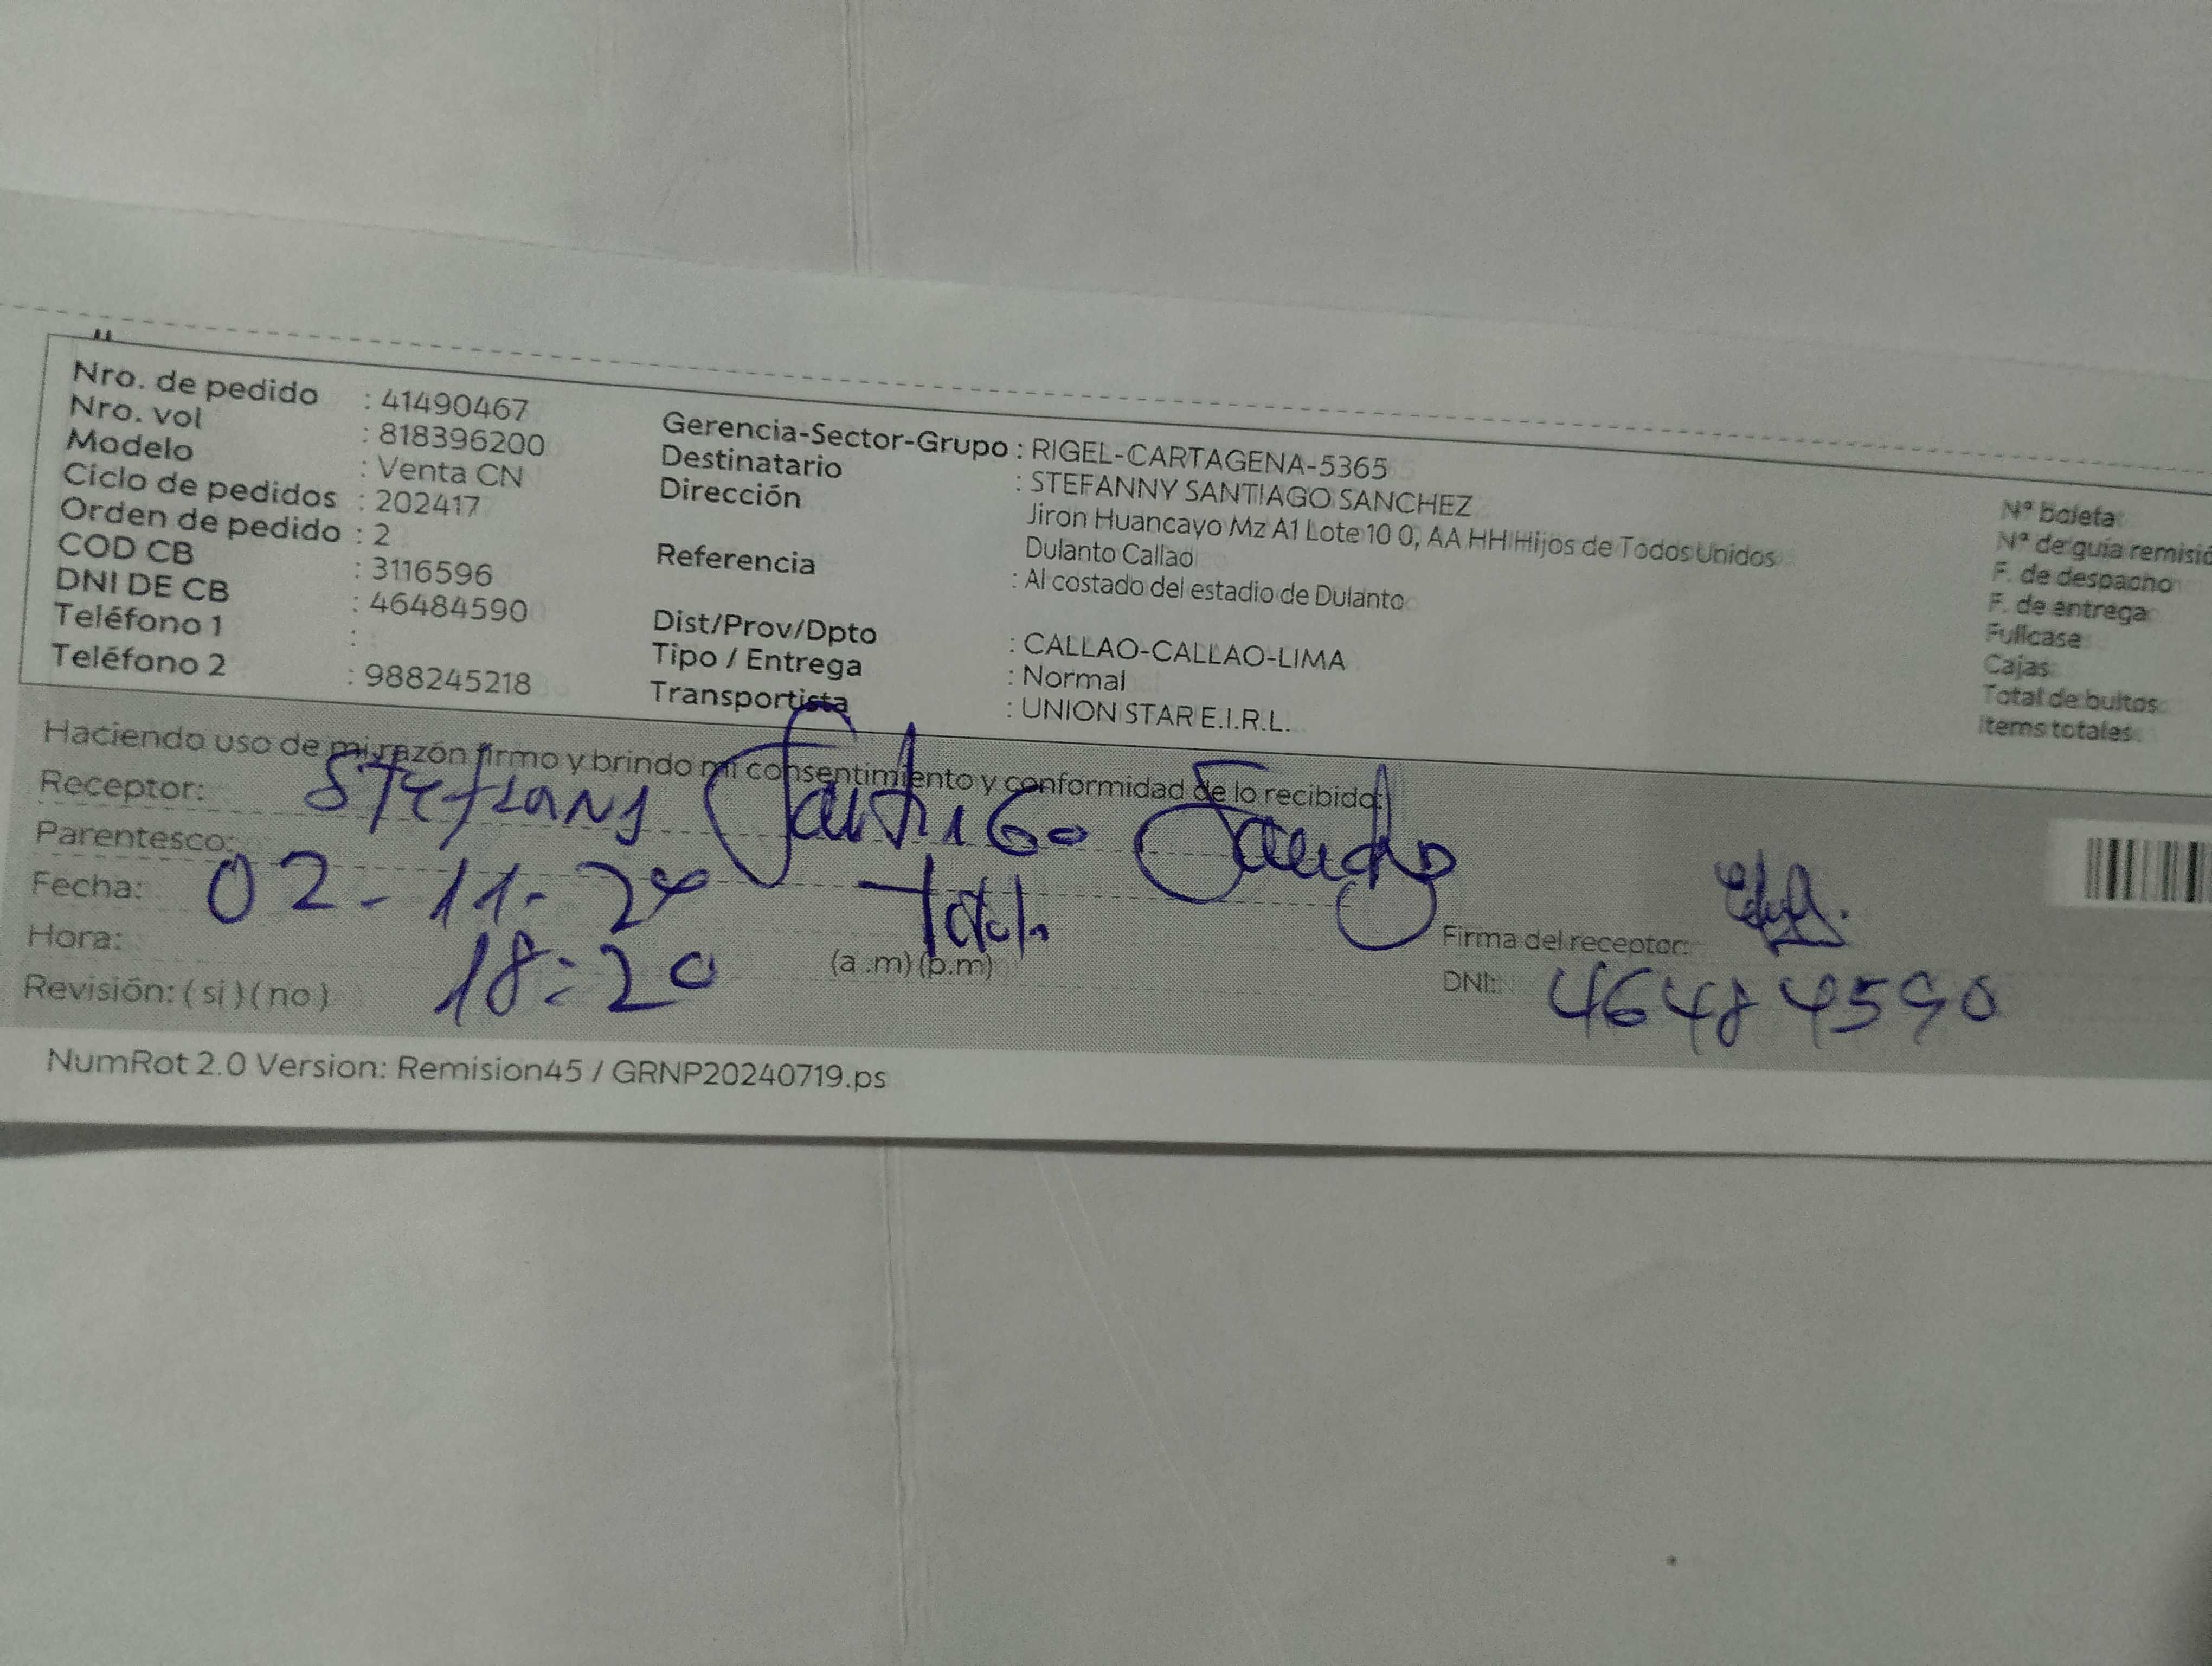 Nro. de pedido : 41490467
Nro. vol : 818396200
Modelo : Venta CN
Ciclo de pedidos : 202417
Orden de pedido : 2
COD CB : 3116596
DNI DE CB : 46484590
Teléfono 1 :
Teléfono 2 : 988245218
Gerencia-Sector-Grupo : RIGEL-CARTAGENA-5365
Destinatario : STEFANNY SANTIAGO SANCHEZ
Dirección Jiron Huancayo Mz A1 Lote 10 0, AA HH Hijos de Todos Unidos
Dulanto Callao
Referencia : Al costado del estadio de Dulanto
Dist/Prov/Dpto : CALLAO-CALLAO-LIMA
Tipo / Entrega : Normal
Transportista : UNION STAR E.I.R.L.
Nº boleta
Nº de guía remisió
F. de despacho
F. de entrega
Fullcase
Cajas
Total de bultos
Items totales
Haciendo uso de mi razón firmo y brindo mi consentimiento y conformidad de lo recibido:
Receptor: Santiago
Parentesco:
Fecha: 02-11-24
Hora: 18:20 (a.m)(p.m)
Revisión: (si)(no)
Firma del receptor:
DNI: 46484590
NumRot 2.0 Version: Remision45 / GRNP20240719.ps